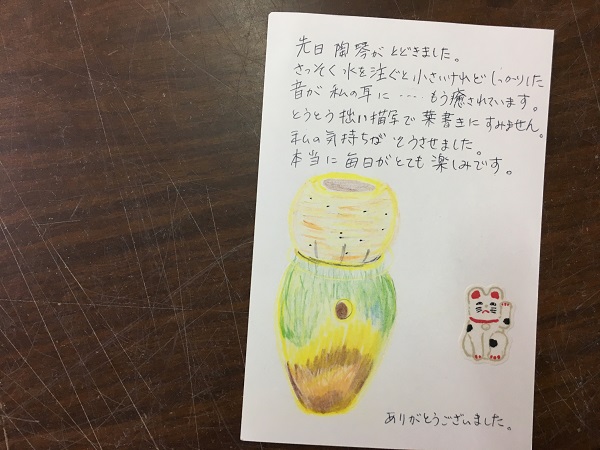 先日 陶琴が とどきました。
さっそく 水を注ぐと 小さいけれど しっかりした
音が 私の耳に ‥‥ もう癒されています。
とうとう 拙い描写で 葉書きに すみません。
私の気持ちが そうさせました。
本当に 毎日がとても 楽しみです。
ありがとうございました。